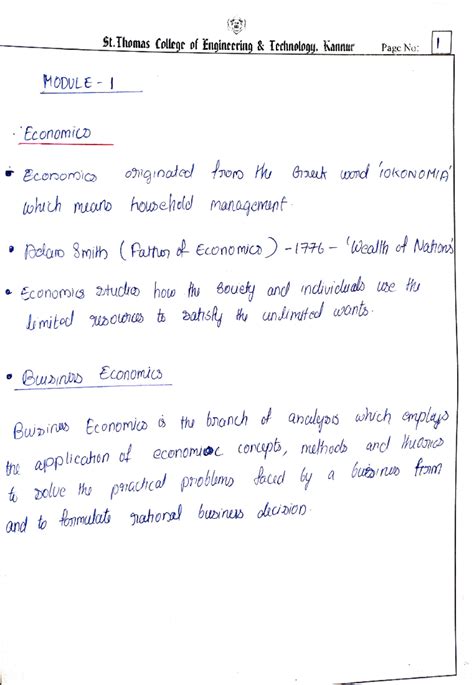 St.Thomas College of Engineering & Technology, Kannur Page No: 1
MODULE - 1
· Economics
• Economics originated from the Greek word 'IOKONOMIA'
which means household management.
• Adam Smith (Father of Economics) - 1776 - 'Wealth of Nations'
• Economics studies how the Society and individuals use the
limited resources to satisfy the unlimited wants.
• Business Economics
Business Economics is the branch of analysis which employs
the application of economic concepts, methods and theories
to solve the practical problems faced by a business firm
and to formulate rational business decision.